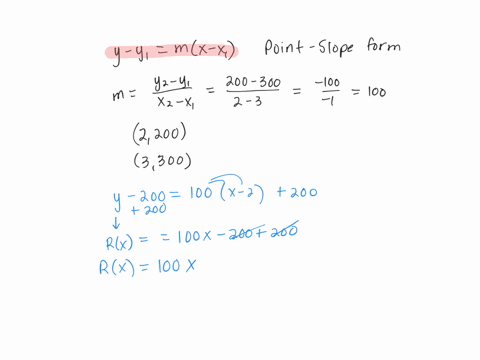 y - y₁ = m(x - x₁) Point-Slope form
m = \frac{y₂ - y₁}{x₂ - x₁} = \frac{200 - 300}{2 - 3} = \frac{-100}{-1} = 100
(2, 200)
(3, 300)
y - 200 = 100 (x - 2) + 200
+ 200
↓
R(x) = = 100x - 200 + 200
R(x) = 100x